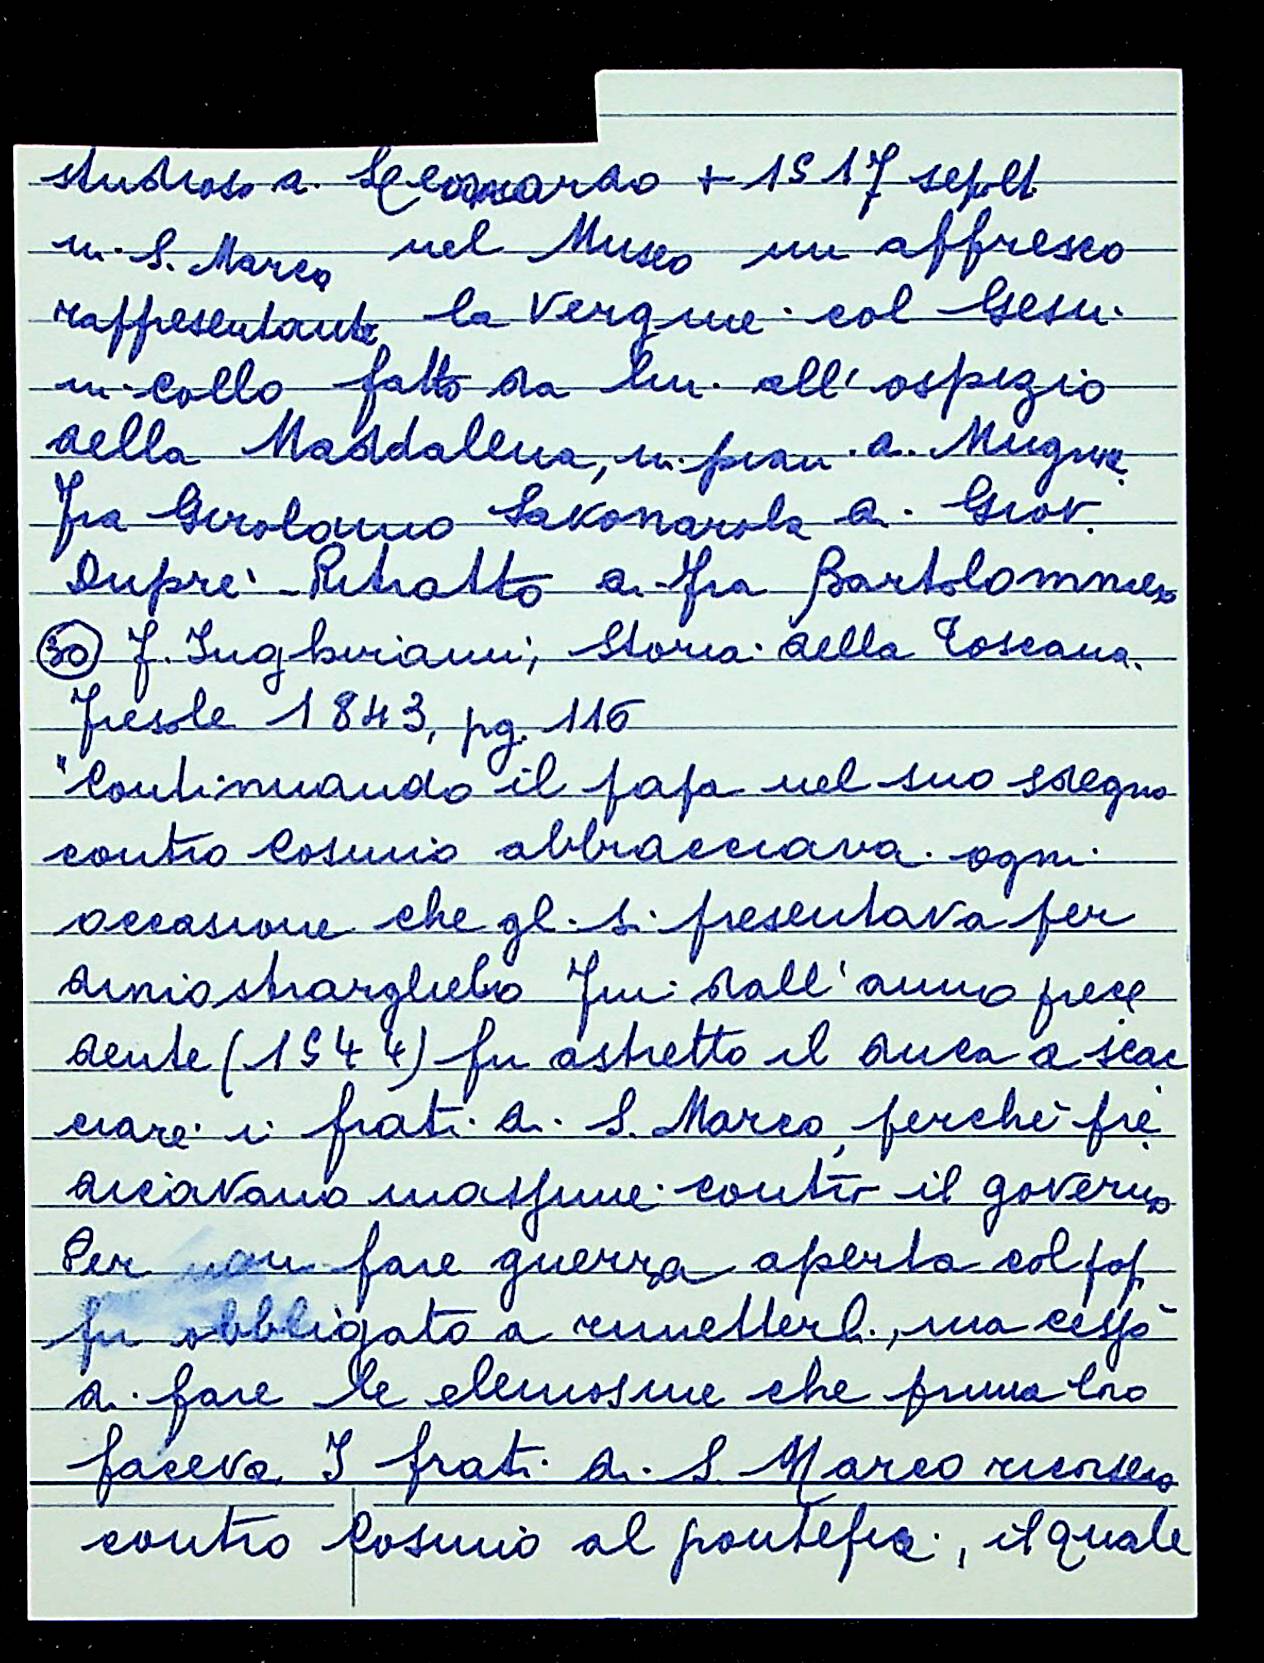 studioso di Leonardo + 1517 sepolt
in S. Marco nel Museo un affresco
rappresentante la Vergine col Gesu
in collo fatto da lui all'ospizio
della Maddalena, in pian di Mugnone
Fra Girolamo Savonarola di Giov.
Duprè - Ritratto di Fra Bartolommeo
(30) F. Inghirami, Storia della Toscana.
Fiesole 1843, pg. 116
"Continuando il papa nel suo sdegno
contro Cosimo abbracciava ogni
occasione che gli si presentava per
dimostrarglielo Fin dall'anno prece
dente (1544) fu astretto il duca a scac
ciare i frati di S. Marco, perchè pre
dicavano massime contro il governo
Per non fare guerra aperta col pop
fu obbligato a rimetterli, ma cessò
di fare le elemosine che prima loro
faceva I frati di S. Marco ricorsero
contro Cosimo al pontefice, il quale